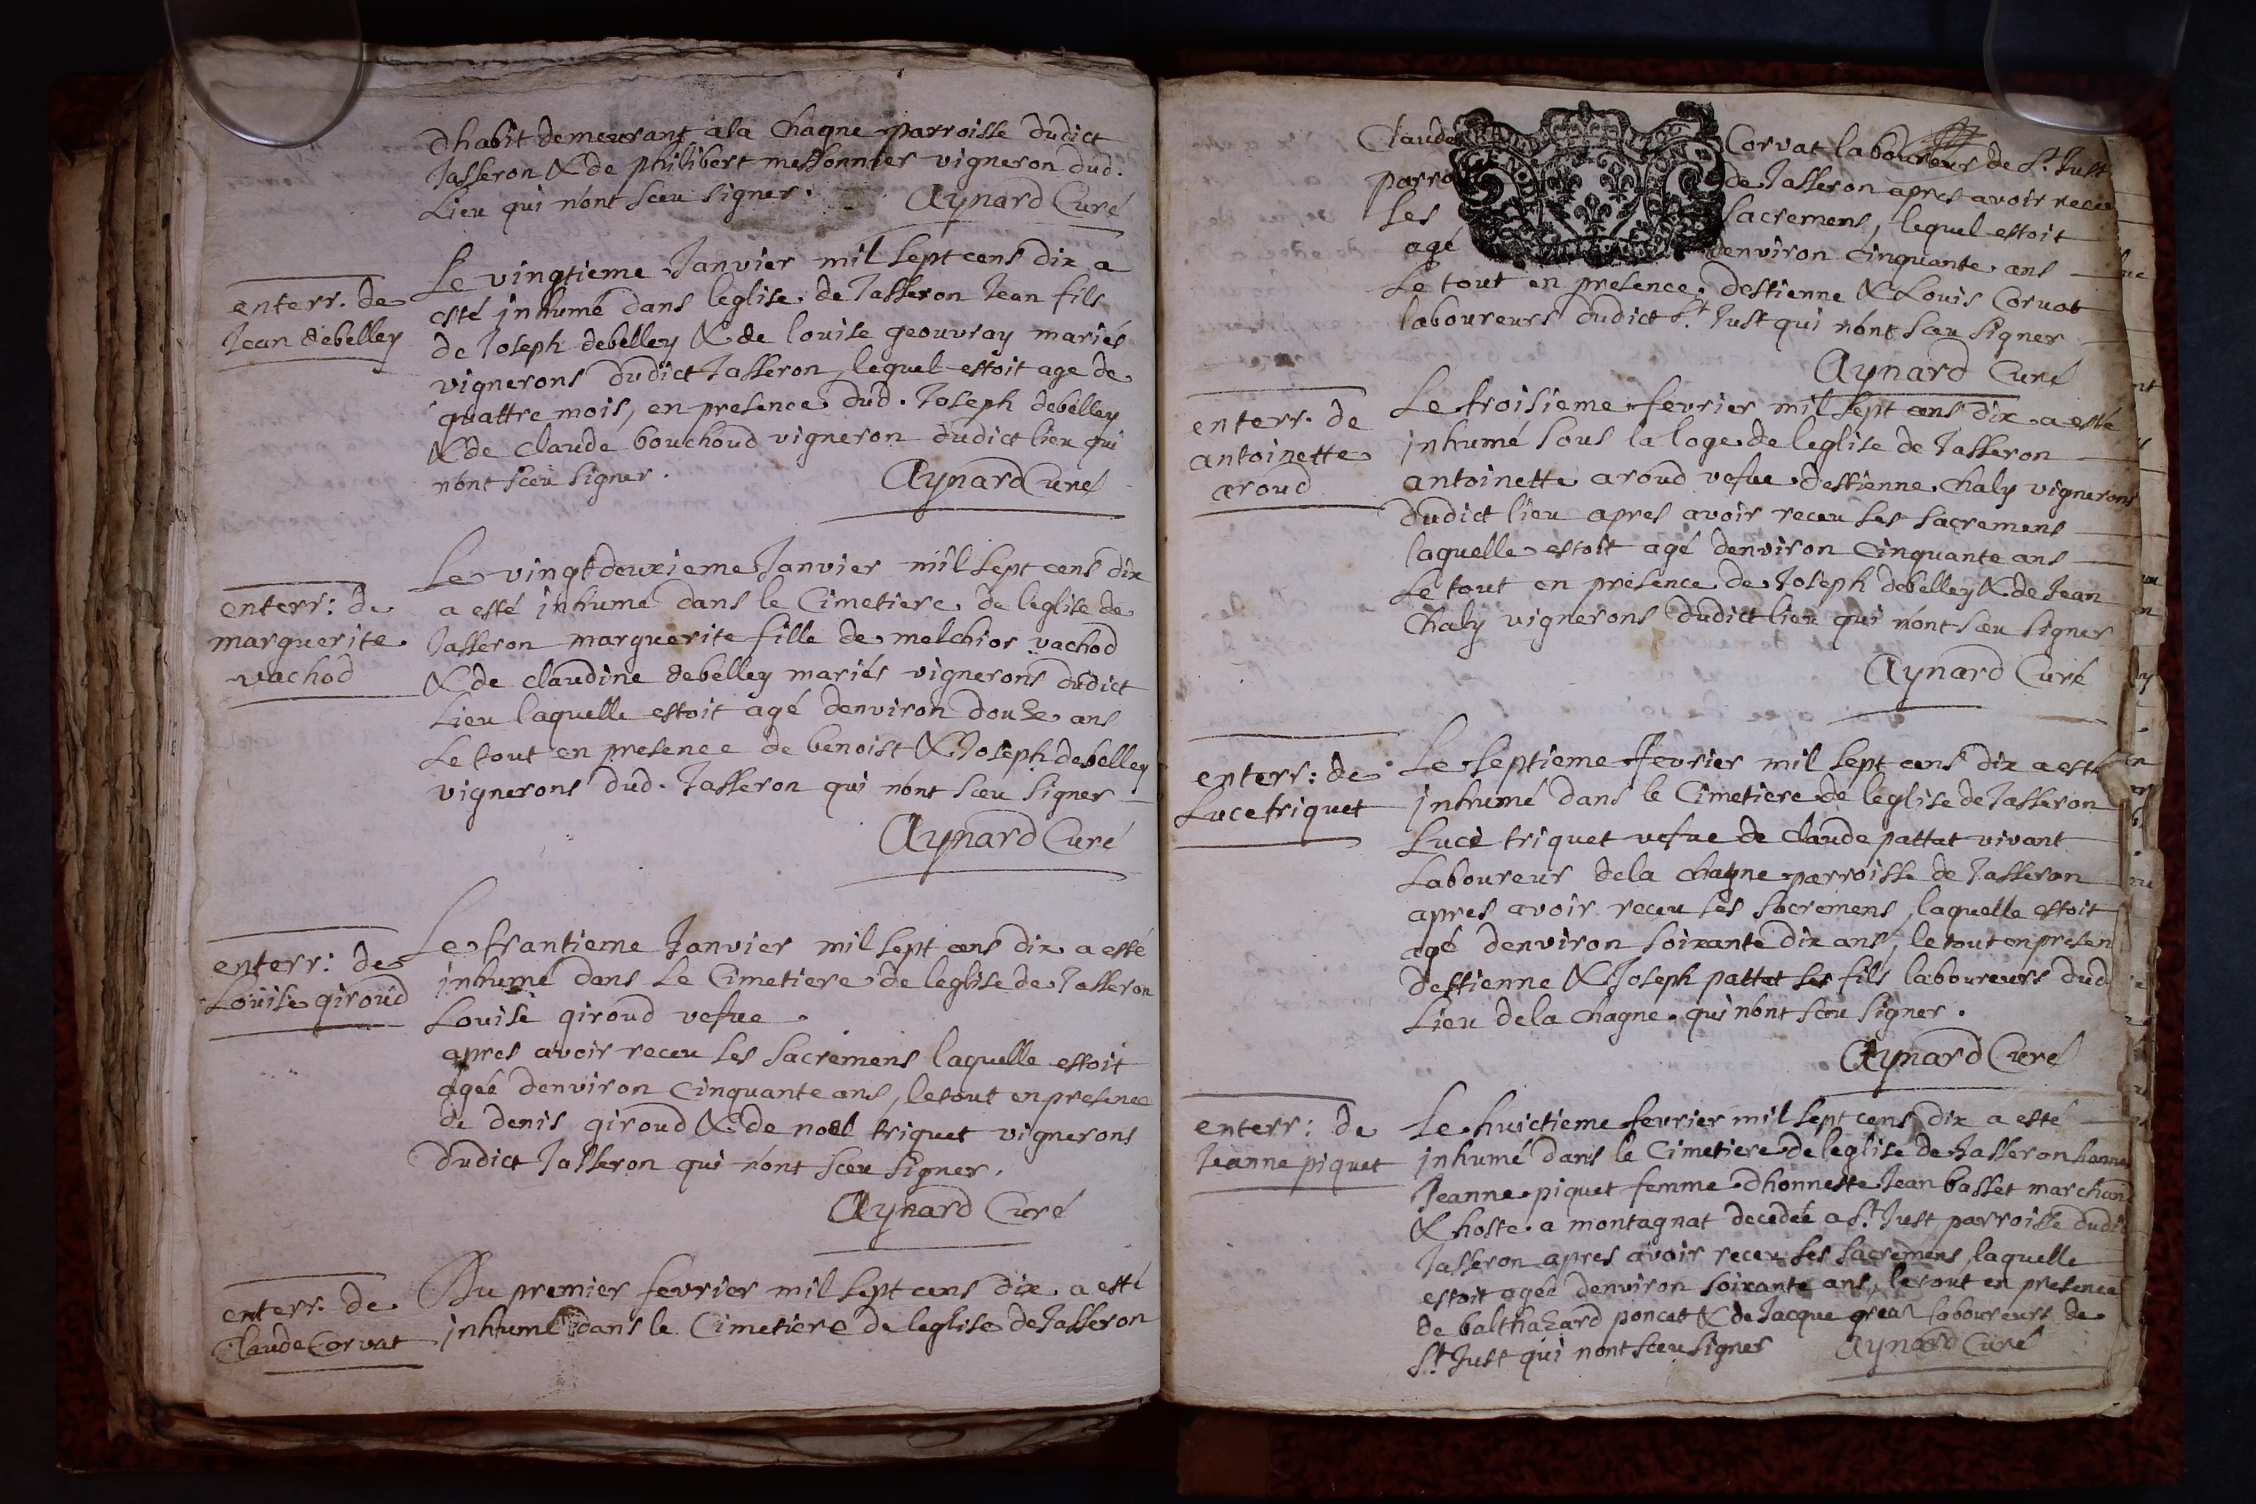 dhabit demeurant ala Chagne parroisse dudict
Jasseron & de philibert messonnier vigneron dud.
Lieu qui n'ont sceu signer. Aynard Curé
enterr. de
Jean debelley
Le vingtieme Janvier mil sept cens dix a
esté inhumé dans leglise de Jasseron Jean fils
de Joseph debelley & de louise geouvray mariés
vignerons dudict Jasseron, lequel estoit age de
quattre mois, en presence dud. Joseph debelley
& de claude bouchoud vigneron dudict lieu qui
n'ont sceu signer. Aynard Curé
enterr: de
marguerite
vachod
Le vingtdeuxieme Janvier mil sept cens dix
a esté inhumé dans le Cimetiere de leglise de
Jasseron marguerite fille de melchior vachod
& de claudine debelley mariés vignerons dudict
Lieu laquelle estoit agé denviron douze ans
Le tout en presence de benoist & Joseph debelley
vignerons dud. Jasseron qui n'ont sceu signer
Aynard Curé
enterr: de
Louise giroud
Le trantieme Janvier mil sept cens dix a esté
inhumé dans Le Cimetiere de leglise de Jasseron
Louise giroud vefue.
apres avoir receu ses sacremens laquelle estoit
agée denviron Cinquante ans, le tout en presence
de denis giroud & de noel triquet vignerons
dudict Jasseron qui n'ont sceu signer.
Aynard Curé
enterr: de
Claude Corvat
Du premier fevrier mil sept cens dix a esté
inhumé dans le Cimetiere de leglise de Jasseron
Claude Corvat laboureur de St. Just
parro de Jasseron apres avoir receu
ses sacremens, lequel estoit
agé denviron Cinquante ans
Le tout en presence destienne & Louis Corvat
laboureurs dudict St. Just qui n'ont sceu signer
Aynard Curé
enterr. de
antoinette
aroud
Le troisieme fevrier mil sept cens dix a esté
inhumé sous la loge de leglise de Jasseron
antoinette aroud vefue destienne chaly vignerons
dudict lieu apres avoir receu ses sacremens
laquelle estoit agé denviron Cinquante ans
Le tout en presence de Joseph debelley & de Jean
Chaly vignerons dudict lieu qui n'ont sceu signer
Aynard Curé
enterr: de
Luce triquet
Le septieme fevrier mil sept cens dix a esté
inhumé dans le Cimetiere de leglise de Jasseron
Luce triquet vefue de claude pattat vivant
Laboureur dela Chagne parroisse de Jasseron
apres avoir receu ses sacremens, laquelle estoit
agé denviron soixante dix ans, le tout en presen
destienne & Joseph pattat ses fils laboureurs dud
Lieu dela Chagne. qui n'ont sceu signer.
Aynard Curé
enterr: de
Jeanne piquet
Le huictieme fevrier mil sept cens dix a esté
inhumé dans le Cimetiere de leglise de Jasseron
Jeanne piquet femme dhonneste Jean basset marchand
& hoste a montagnat decedée a St. Just parroisse dudi
Jasseron apres avoir receu ses sacremens laquelle
estoit agée denviron soixante ans, le tout en presence
de balthazard poncet & de Jacque greal laboureurs de
St. Just qui n'ont sceu signer Aynard Curé